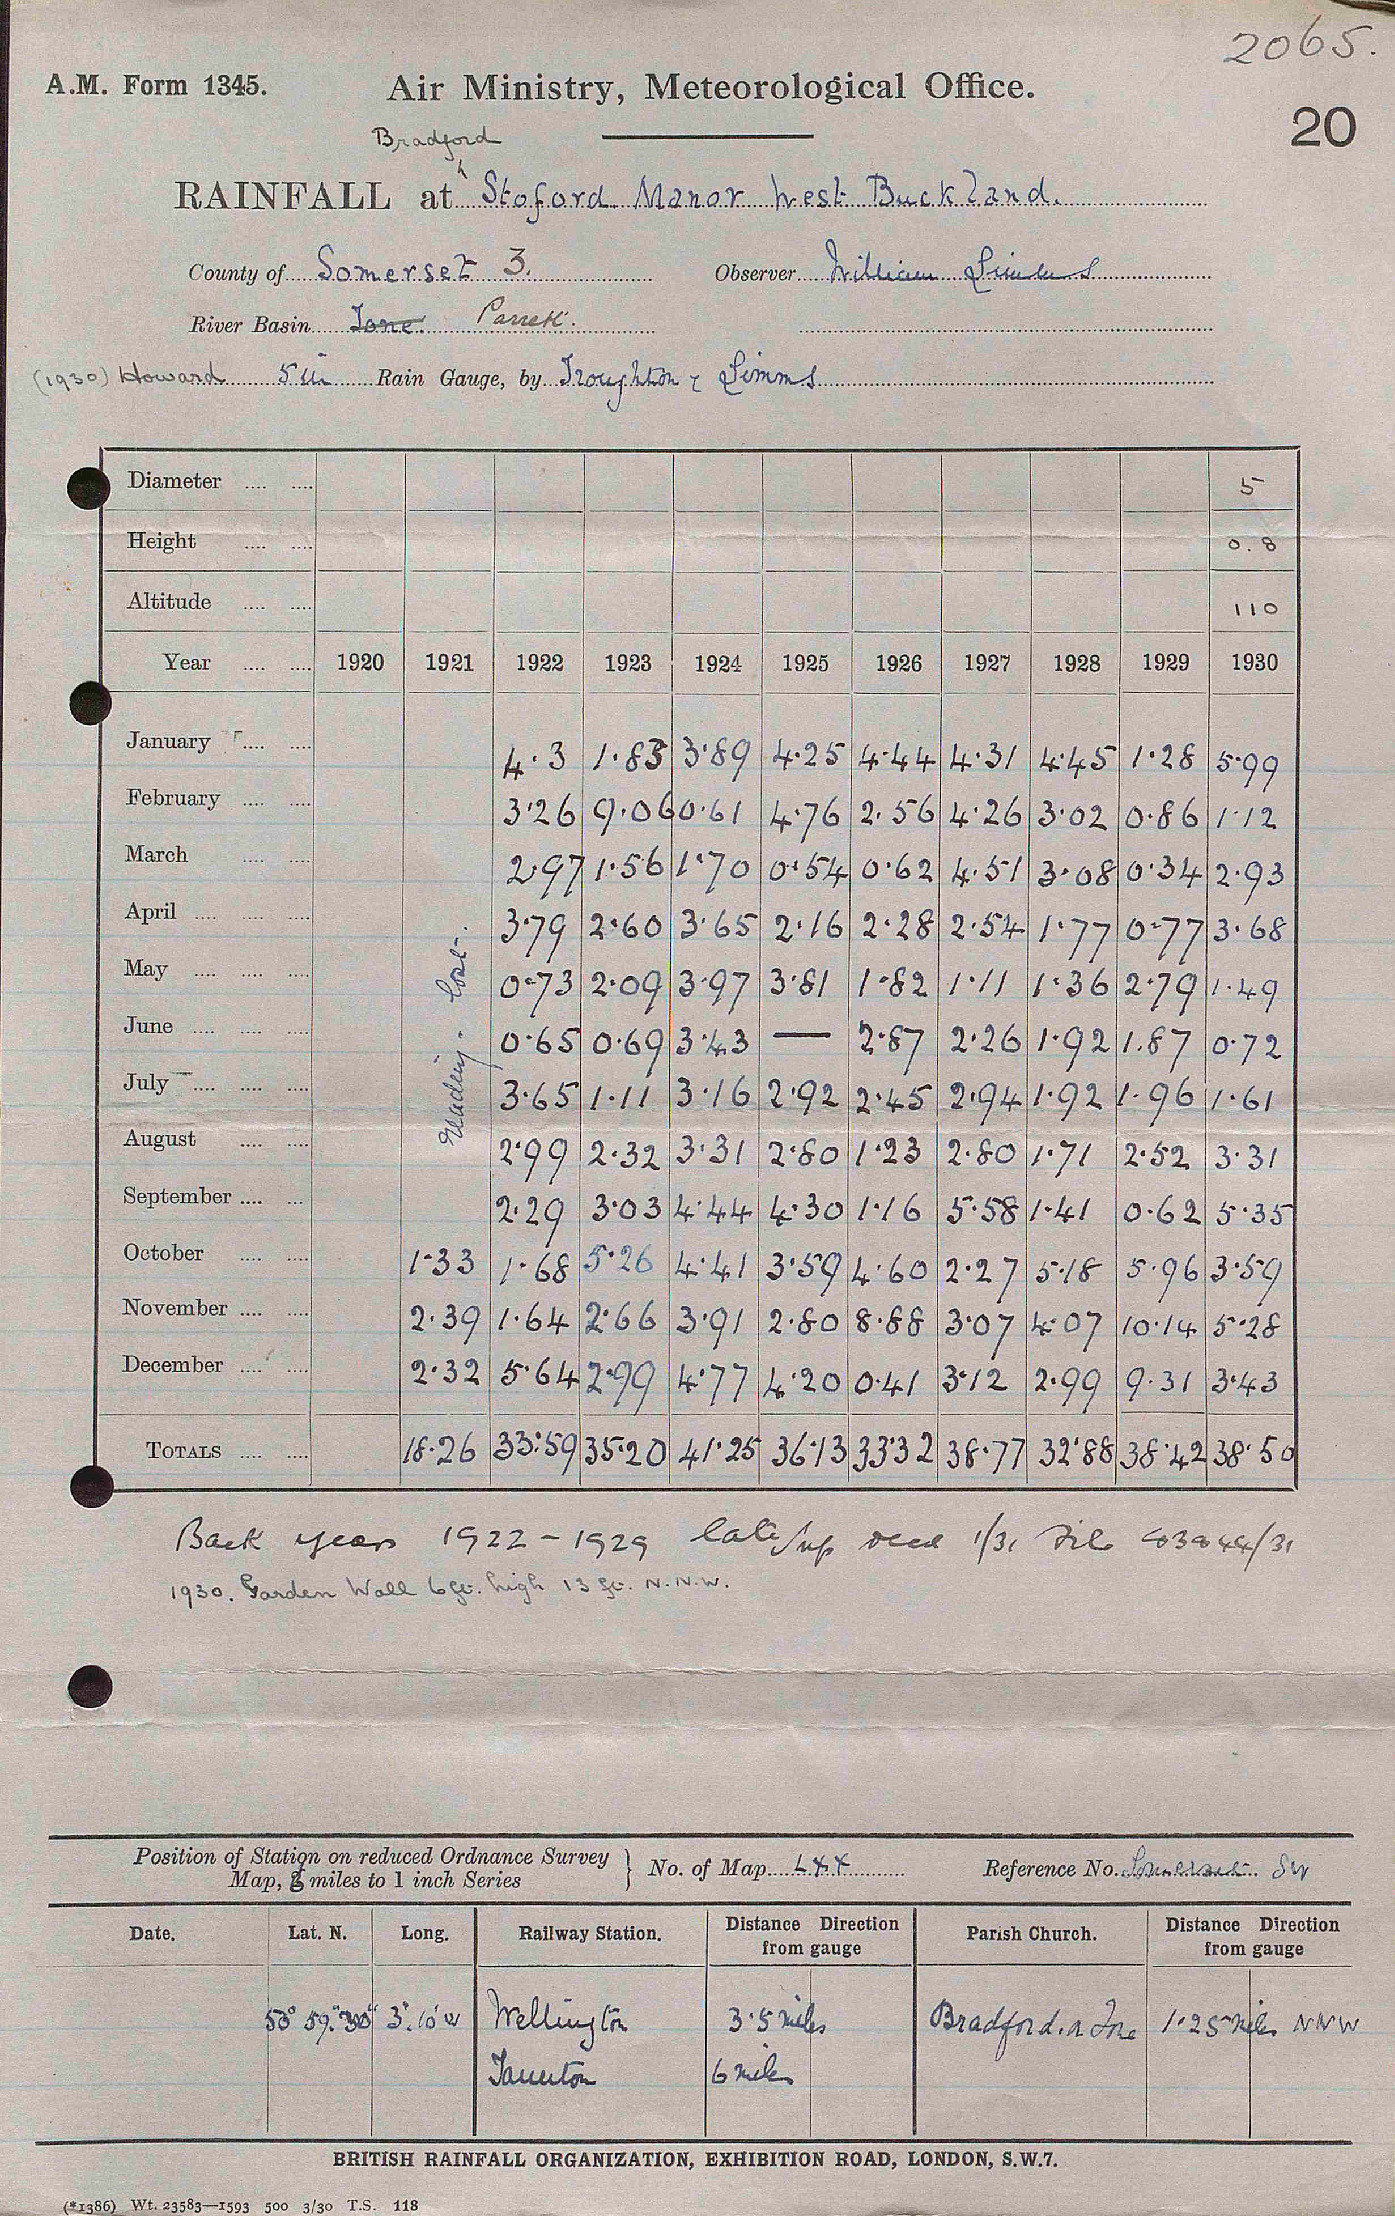 2065.
A.M. Form 1345. Air Ministry, Meteorological Office.
20
Bradford
RAINFALL at Stoford Manor West Buckland.
County of Somerset 3. Observer William Simms
River Basin Tone. Parrett.
(1930) Howard 5 in Rain Gauge, by Troughton & Simms
Diameter .... .... 5
Height .... .... 0.8
Altitude .... .... 110
Year .... .... 1920 1921 1922 1923 1924 1925 1926 1927 1928 1929 1930
Reading. Lost.
January .... .... 4.3 1.83 3.89 4.25 4.44 4.31 4.45 1.28 5.99
February .... .... 3.26 9.06 0.61 4.76 2.56 4.26 3.02 0.86 1.12
March .... .... 2.97 1.56 1.70 0.54 0.62 4.51 3.08 0.34 2.93
April .... .... .... 3.79 2.60 3.65 2.16 2.28 2.54 1.77 0.77 3.68
May .... .... .... 0.73 2.09 3.97 3.81 1.82 1.11 1.36 2.79 1.49
June .... .... .... 0.65 0.69 3.43 — 2.87 2.26 1.92 1.87 0.72
July .... .... .... 3.65 1.11 3.16 2.92 2.45 2.94 1.92 1.96 1.61
August .... .... 2.99 2.32 3.31 2.80 1.23 2.80 1.71 2.52 3.31
September .... ... 2.29 3.03 4.44 4.30 1.16 5.58 1.41 0.62 5.35
October .... .... 1.33 1.68 5.26 4.41 3.59 4.60 2.27 5.18 5.96 3.59
November .... .... 2.39 1.64 2.66 3.91 2.80 8.88 3.07 4.07 10.14 5.28
December .... .... 2.32 5.64 2.99 4.77 4.20 0.41 3.12 2.99 9.31 3.43
TOTALS .... .... 18.26 33.59 35.20 41.25 36.13 33.32 38.77 32.88 38.42 38.50
Back years 1922 - 1929 1/31
1930. Garden Wall 6 ft. high 13 ft. N.N.W.
Position of Station on reduced Ordnance Survey
Map, miles to 1 inch Series
No. of Map
Reference No. Somerset SW
Date. Lat. N. Long. Railway Station. Distance Direction from gauge Parish Church. Distance Direction from gauge
50° 59' 30" 3° 10' W Wellington 3.5 miles Bradford. n Tone 1.25 miles NNW
Taunton 6 miles
BRITISH RAINFALL ORGANIZATION, EXHIBITION ROAD, LONDON, S.W.7.
(*1386) Wt. 23583—1593 500 3/30 T.S. 118